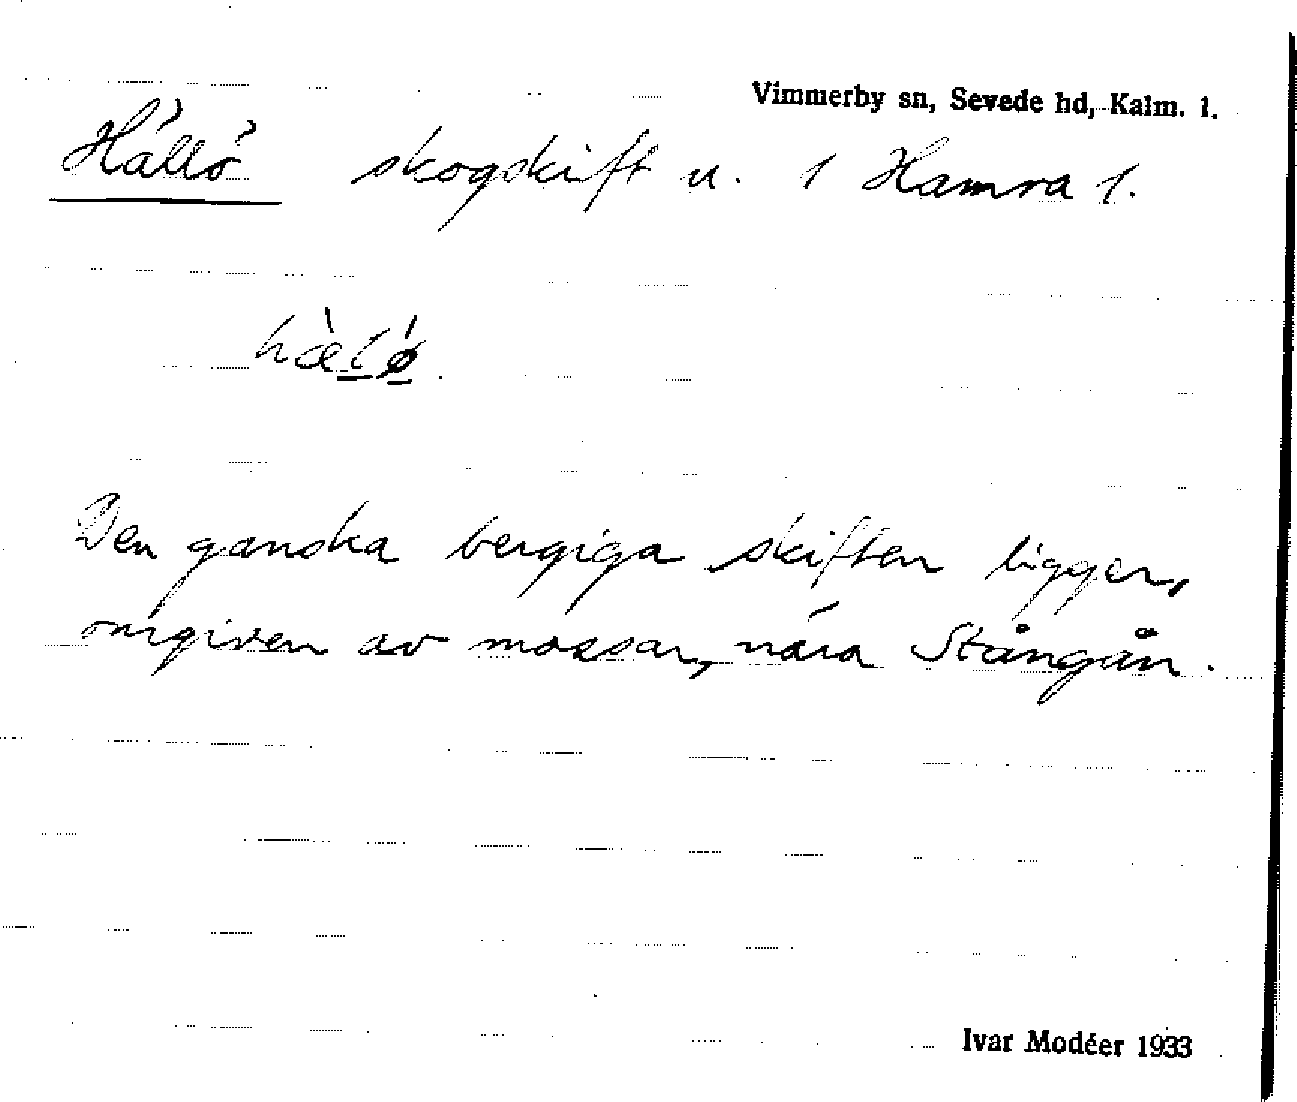 Vimmerby sn, Sevede hd, Kalm. l.
Hällö skogskift u. 1 Hamra 1.
Den ganska bergiga skiften ligger,
omgiven av mossar, nära Stångån.
Ivar Modéer 1933